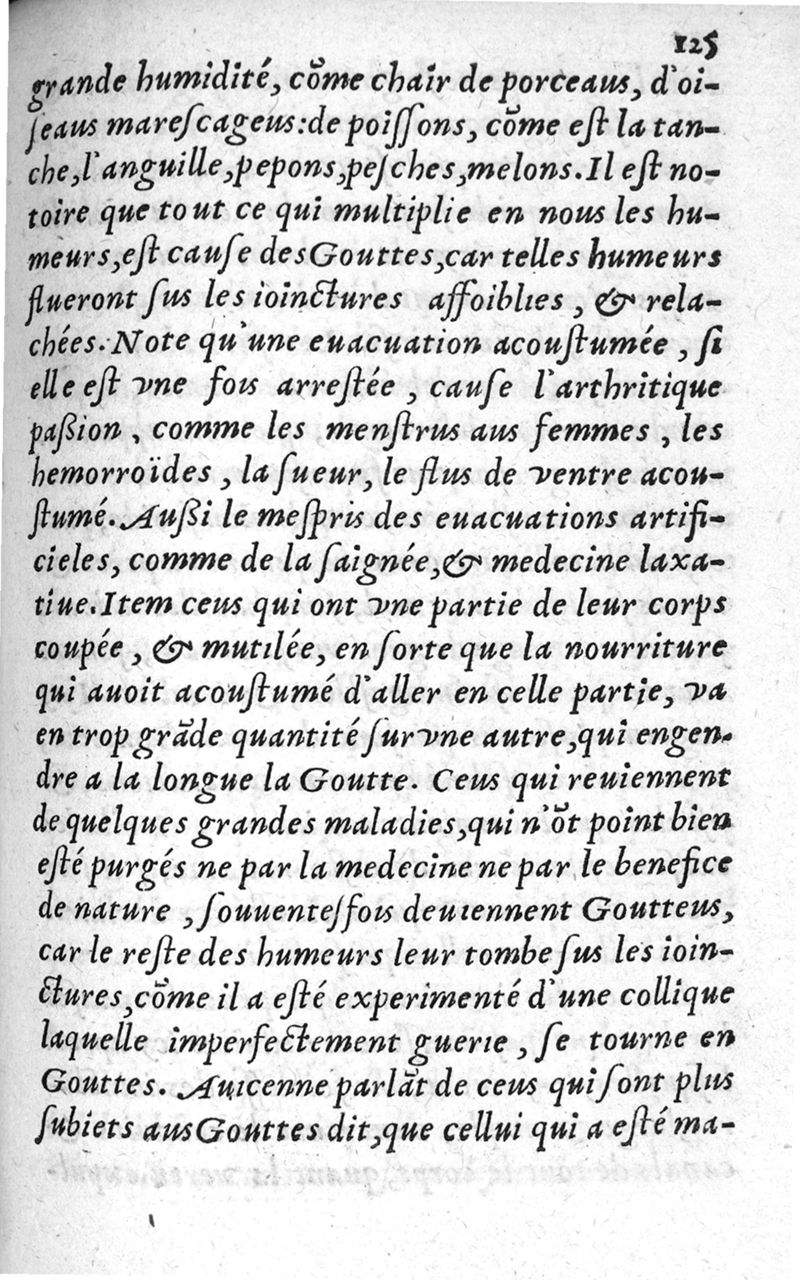 125
grande humidité, cõme chair de porceaus, d'oi-
seaus marescageus: de poissons, cõme est la tan-
che, l'anguille, pepons, pesches, melons. Il est no-
toire que tout ce qui multiplie en nous les hu-
meurs, est cause des Gouttes, car telles humeurs
flueront sus les ioinctures affoiblies, & rela-
chées. Note qu'une euacuation acoustumée, si
elle est vne fois arrestée, cause l'arthritique
paßion, comme les menstrus aus femmes, les
hemorroïdes, la sueur, le flus de ventre acou-
stumé. Außi le mespris des euacuations artifi-
cieles, comme de la saignée, & medecine laxa-
tiue. Item ceus qui ont vne partie de leur corps
coupée, & mutilée, en sorte que la nourriture
qui auoit acoustumé d'aller en celle partie, va
en trop grãde quantité sur vne autre, qui engen-
dre a la longue la Goutte. Ceus qui reuiennent
de quelques grandes maladies, qui n'õt point bien
esté purgés ne par la medecine ne par le benefice
de nature, souuentesfois deuiennent Goutteus,
car le reste des humeurs leur tombe sus les ioin-
ctures, cõme il a esté experimenté d'une collique
laquelle imperfectement guerie, se tourne en
Gouttes. Auicenne parlãt de ceus qui sont plus
subiets aus Gouttes dit, que cellui qui a esté ma-